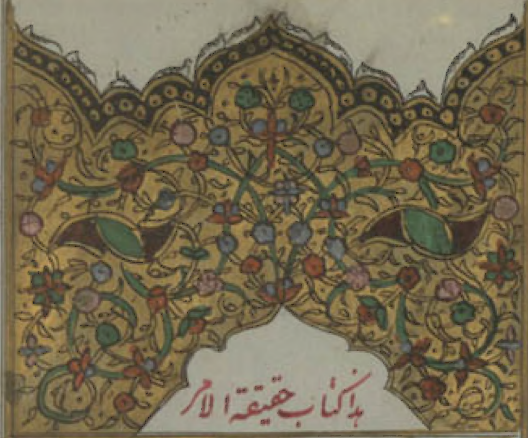 هذا كتاب حقيقة الامر